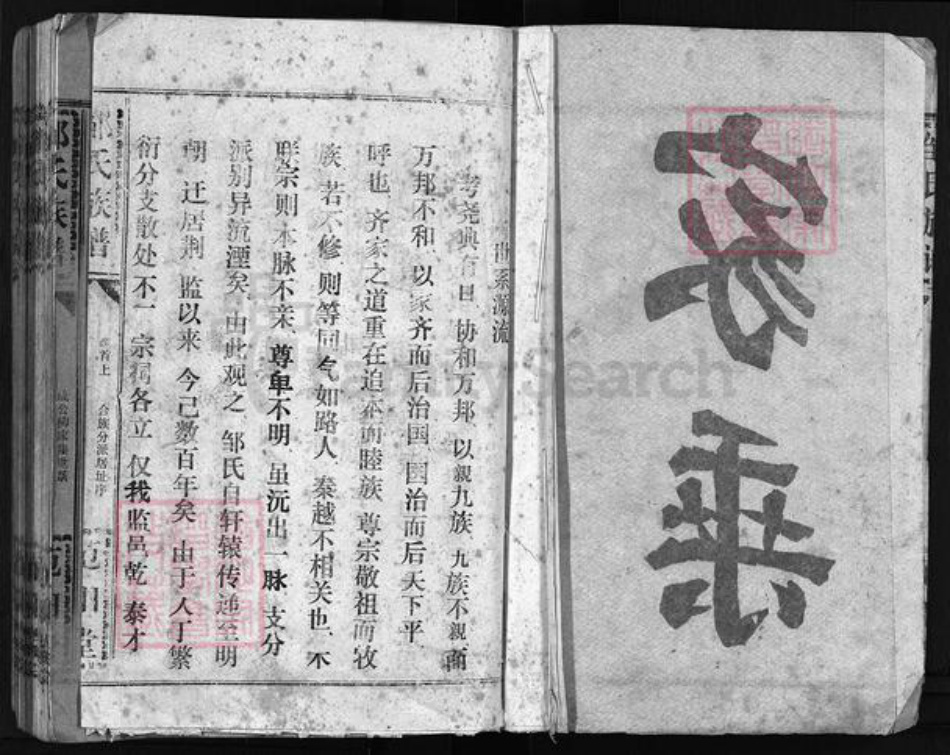 家乘
世系源流
考尧典有曰 协和万邦 以親九族 九族不親
万邦不和 以家齐而后治国 国治而后天下平
呼也 齐家之道重在追本而睦族 尊宗敬祖而收
族 若不修 则等同气如路人 秦越不相关也 不
联宗则本脉不亲 尊卑不明 虽沅出一脉 支分
派别异流湮矣 由此观之 邹氏自轩辕传递至明
朝 迁居荆 监以来 今己数百年矣 由于人丁繁
衍分支散处不一 宗祠各立 仅我监邑乾 泰才
邹氏族谱
卷首上
合族分派居址序
范阳堂